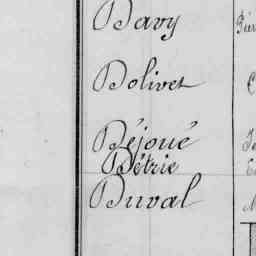 Davy
Dolivet
Déjoué
Détrie
Duval